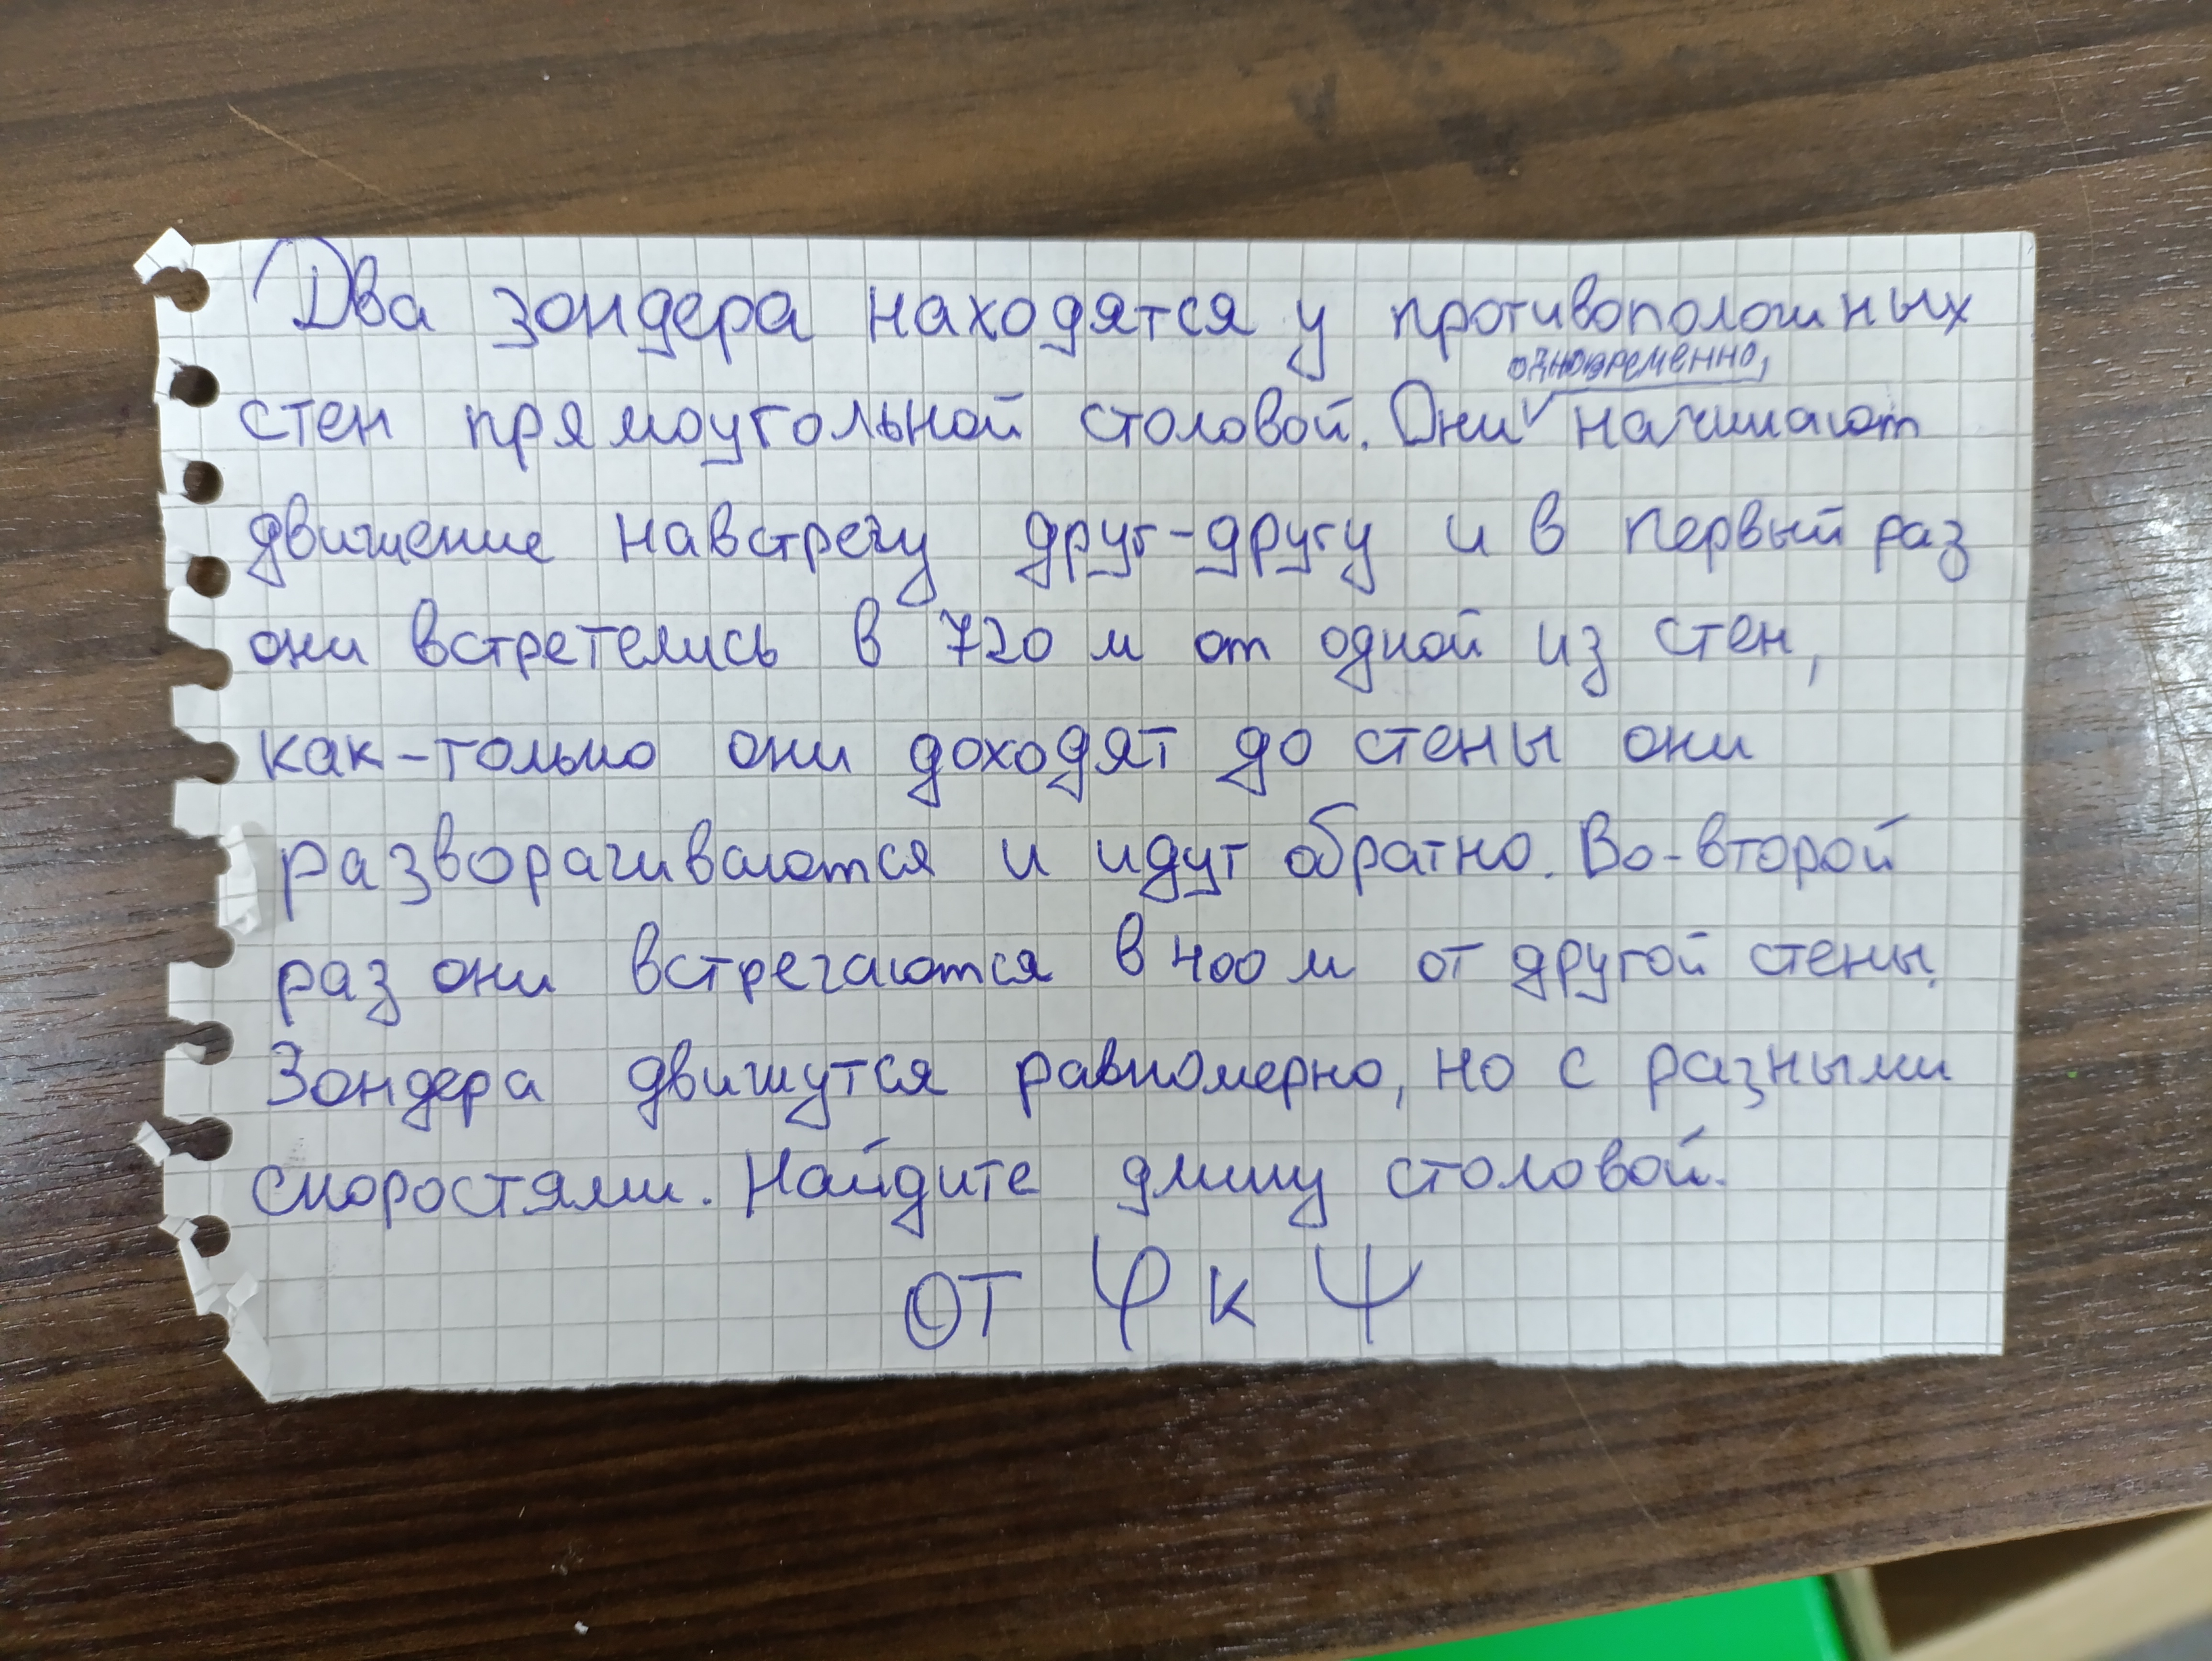 Два зондера находятся у противоположных
стен прямоугольной столовой. Они одновременно, начинают
движение навстречу друг-другу и в первый раз
они встретелись в 720 м от одной из стен,
как-только они доходят до стены они
разворачиваются и идут обратно. Во-второй
раз они встречаются в 400 м от другой стены.
Зондера движутся равномерно, но с разными
скоростями. Найдите длину столовой.
от φ к ψ